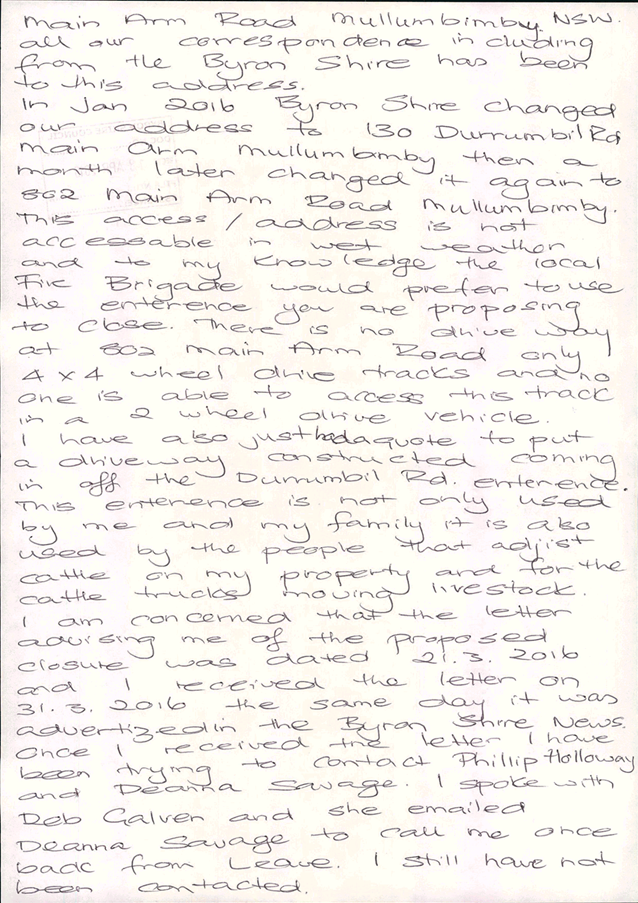 Main Arm Road Mullumbimby NSW.
all our correspondence in cluding
from the Byron Shire has been
to this address.
In Jan 2016 Byron Shire changed
our address to 130 Durrumbil Rd
main arm mullumbimby then a
month later changed it again to
802 Main Arm Road Mullumbimby.
This access / address is not
accessable in wet weather
and to my knowledge the local
Fire Brigade would prefer to use
the enterence you are proposing
to close. There is no drive way
at 802 Main Arm Road only
4 x 4 wheel drive tracks and no
one is able to access this track
in a 2 wheel drive vehicle.
I have also just had a quote to put
a driveway constructed coming
in off the Durrumbil Rd. enterence.
This enterence is not only used
by me and my family it is also
used by the people that adjist
cattle on my property and for the
cattle trucks moving livestock.
I am concerned that the letter
advising me of the proposed
closure was dated 21.3.2016
and I received the letter on
31.3.2016 the same day it was
advertized in the Byron Shire News.
Once I received the letter I have
been trying to contact Phillip Holloway
and Deanna Savage. I spoke with
Deb Galven and she emailed
Deanna Savage to call me once
back from Leave. I still have not
been contacted.